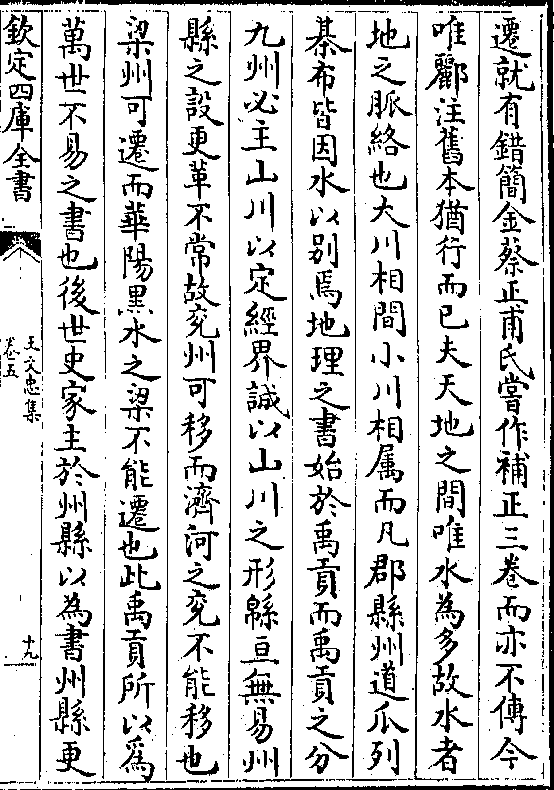 遷就有錯簡金蔡正甫氏嘗作補正三卷而亦不傳今
唯酈注舊本猶行而已夫天地之間唯水為多故水者
地之脈絡也大川相間小川相属而凡郡縣州道瓜列
棊布皆因水以別焉地理之書始於禹貢而禹貢之分
九州必主山川以定經界誠以山川之形緜亘無易州
縣之設更革不常故兖州可移而濟河之兖不能移也
梁州可遷而華陽黒水之梁不能遷也此禹貢所以爲
萬世不易之書也後世史家主於州縣以為書州縣更
欽定四庫全書
王文忠集
卷五
十九